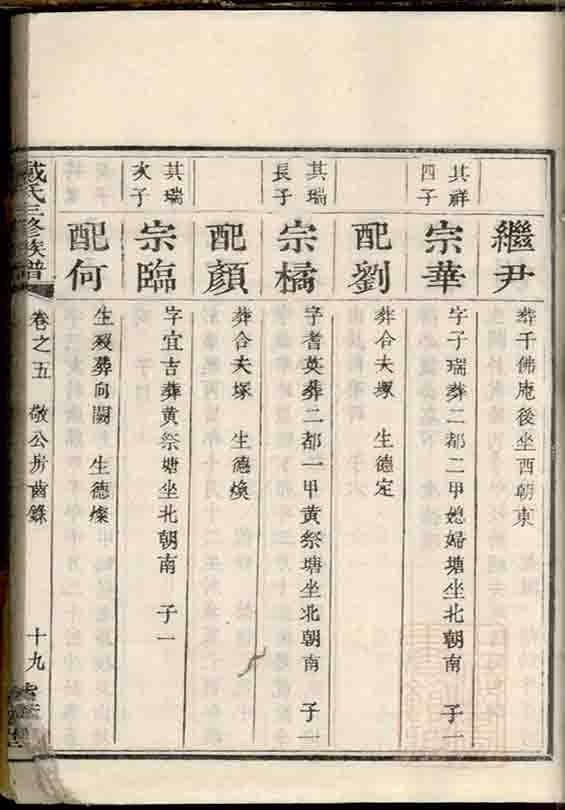 繼尹
葬千佛庵後坐西朝東
其祥四子
宗華
字子瑞葬二都二甲媳婦塘坐北朝南 子一
配劉
葬合夫塚 生德定
其瑞長子
宗橘
字耆英葬二都一甲黄祭塘坐北朝南 子一
配顏
葬合夫塚 生德煥
其瑞次子
宗臨
字宜吉葬黄祭塘坐北朝南 子一
配何
生歿葬向闕 生德燦
戴氏三修族譜
卷之五 敬公房齒錄
十九